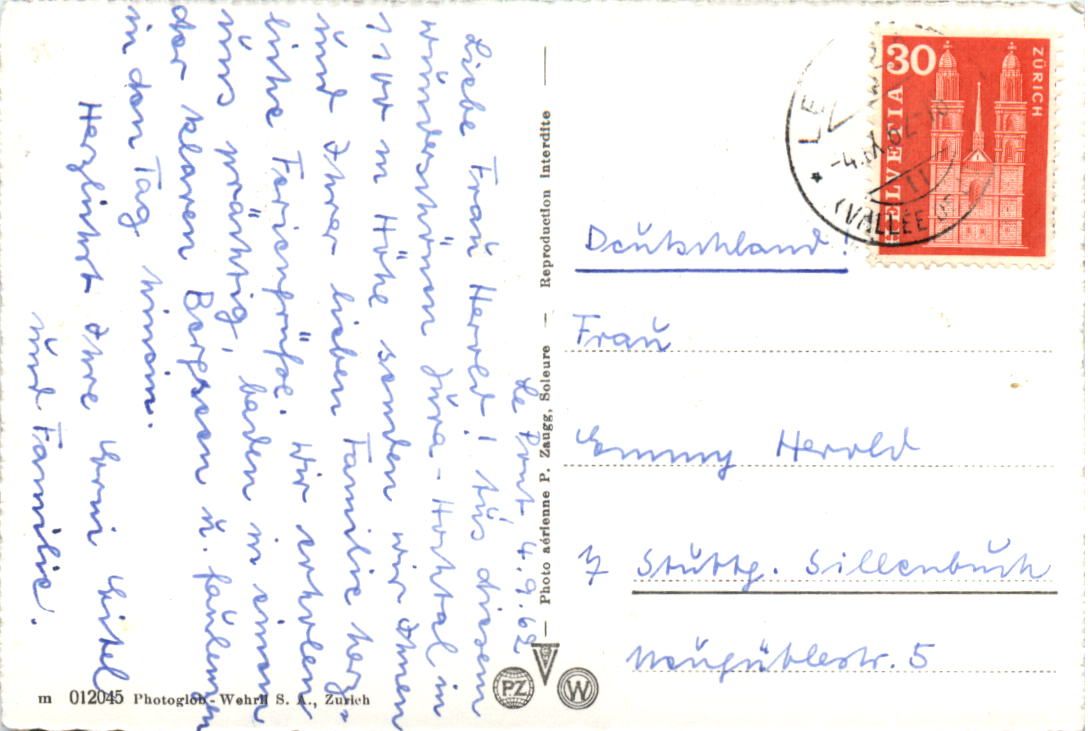 Le Pont 4.9.62
Liebe Frau Herold! Aus diesem
wunderschönen Jura-Hochtal in
1100 m Höhe senden wir Ihnen
und Ihrer lieben Familie herz-
liche Feriengrüße. Wir erholen
uns prächtig, baden in einem
der klaren Bergseen u. faulenzen
in den Tag hinein.
Herzlichst Ihre Erni Eitel
und Familie.
Deutschland!
Frau
Emmy Herold
7 Stuttg. Sillenbuch
5
30
HELVETIA
ZÜRICH
LE
-4.IX.62
(VALLÉE DE
Photo aérienne P. Zaugg, Soleure — Reproduction Interdite
PZ
W
m 012045 Photoglob-Wehrli S. A., Zurich